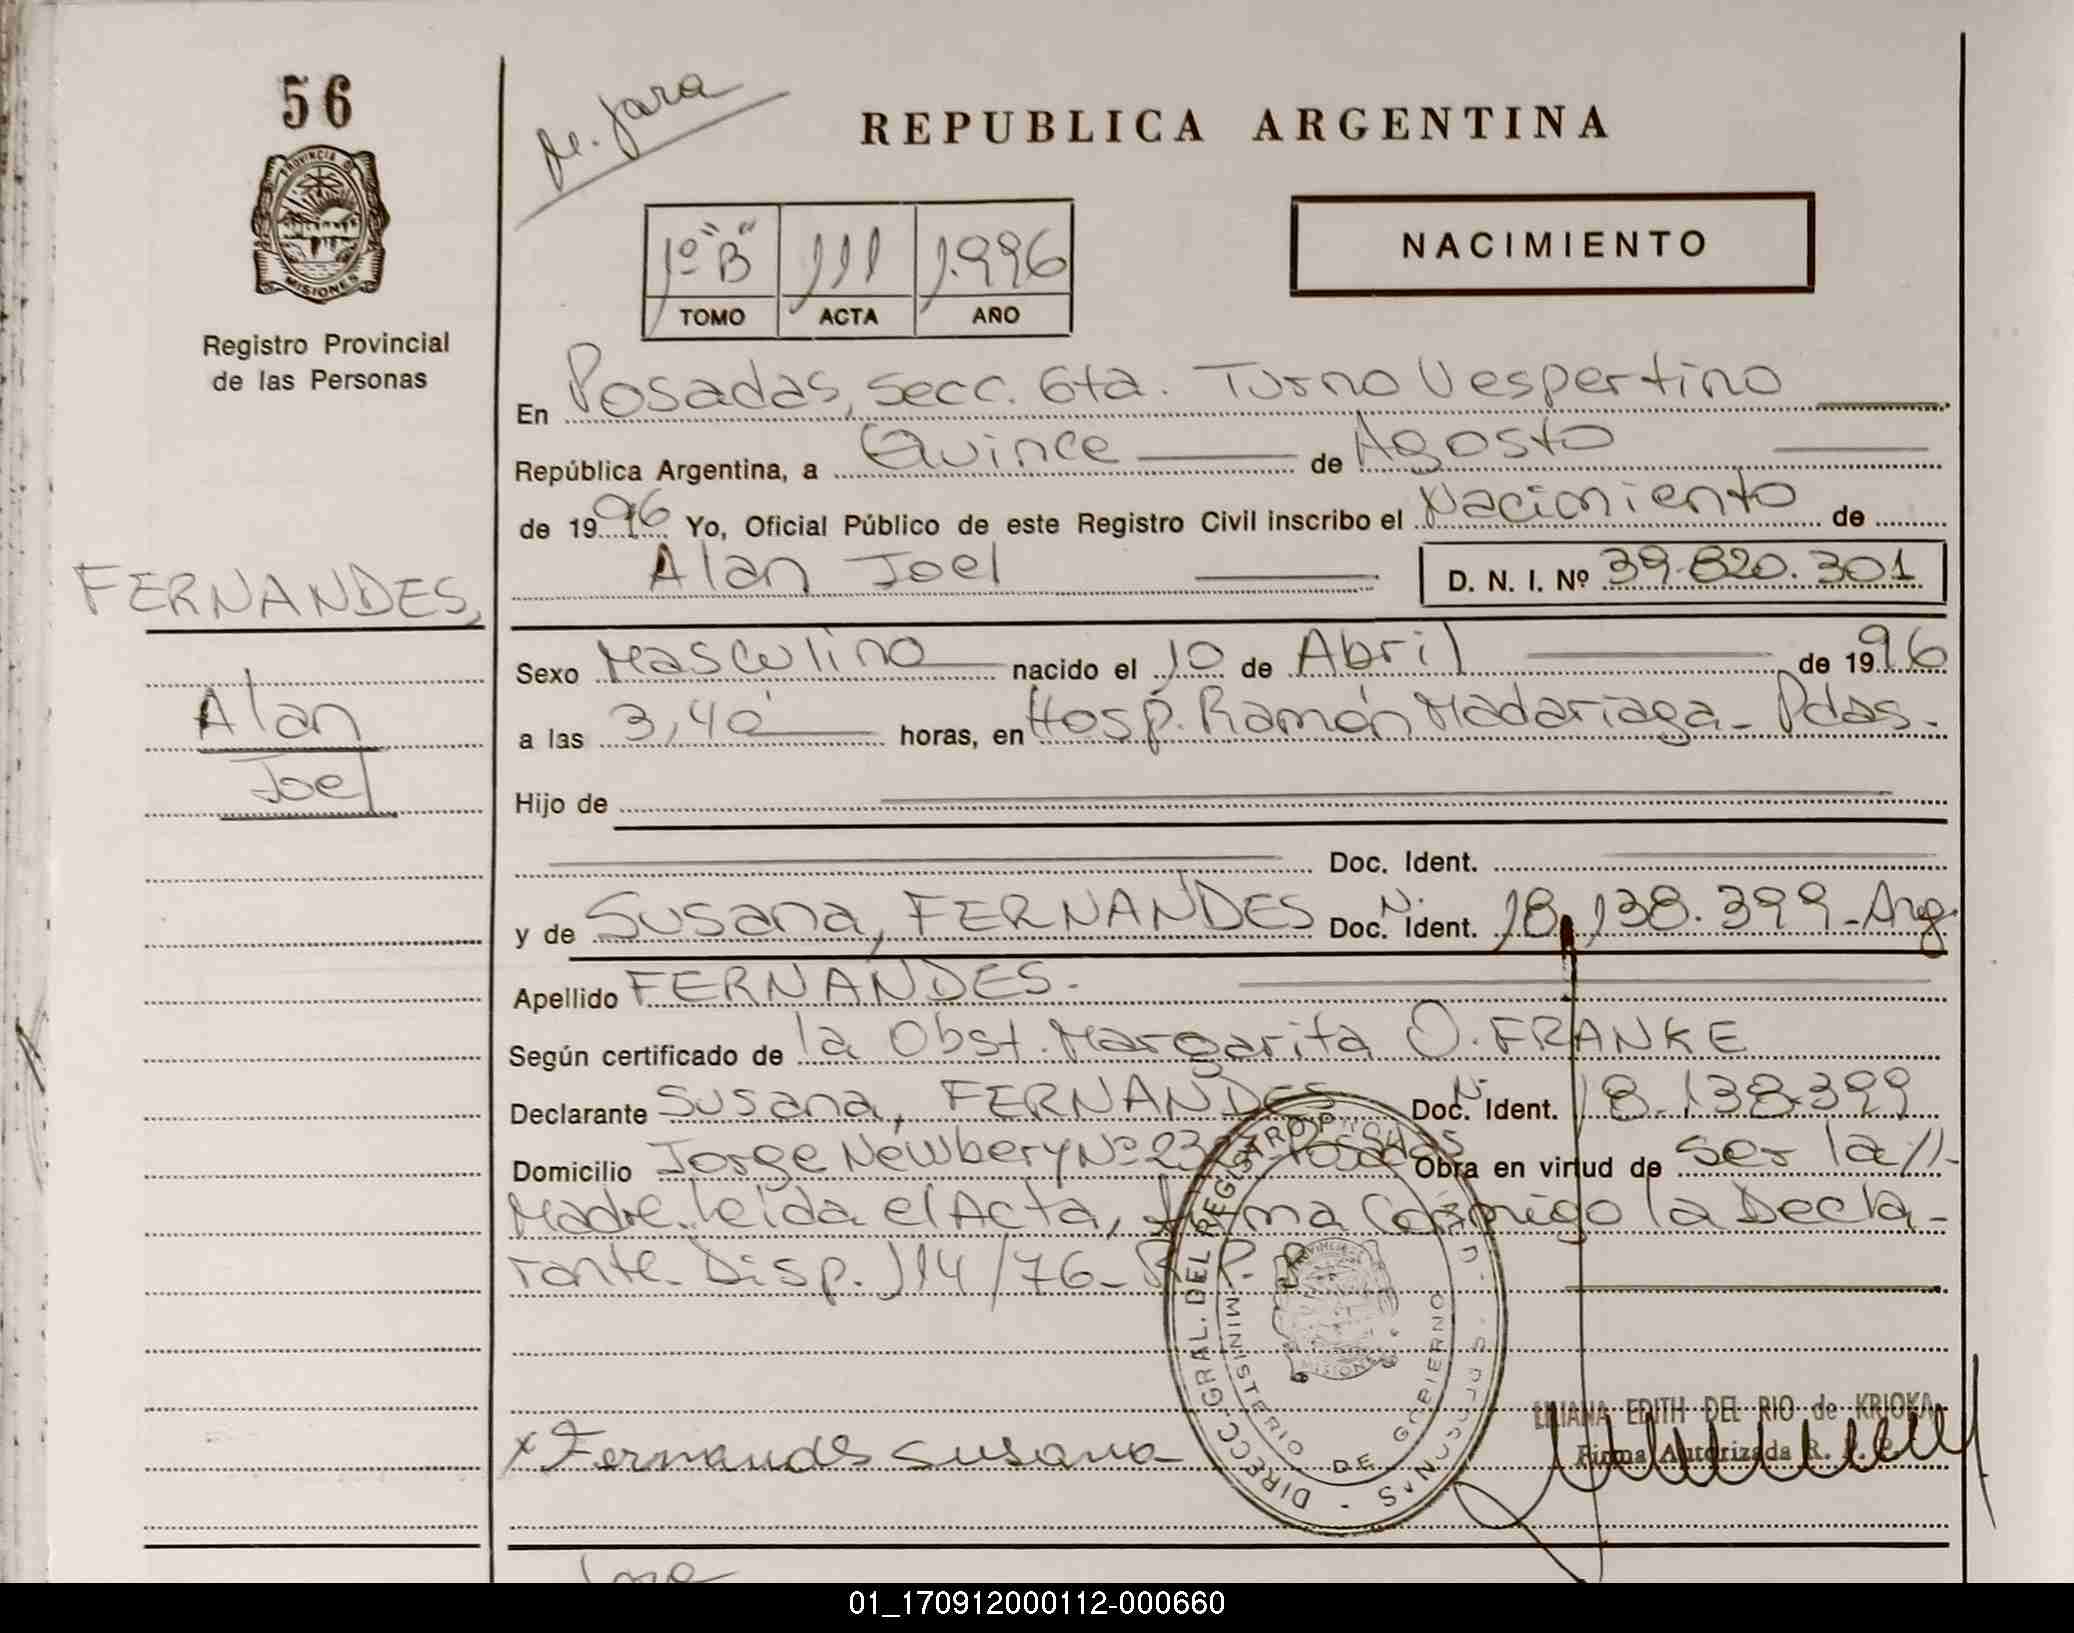 56
PROVINCIA DE
MISIONES
Registro Provincial
de las Personas
M. Jara
REPUBLICA ARGENTINA
1º "B" 111 1.996
TOMO ACTA AÑO
NACIMIENTO
En Posadas, Secc. 6ta. Turno Vespertino
República Argentina, a Quince de Agosto
de 1996 Yo, Oficial Público de este Registro Civil inscribo el Nacimiento de
Alan Joel D. N. I. Nº 39.820.301
FERNANDES,
Alan
Joel
Sexo Masculino nacido el 10 de Abril de 1996
a las 3,40 horas, en Hosp. Ramón Madariaga - Pdas.
Hijo de
Doc. Ident.
y de Susana, FERNANDES Doc. N. Ident. 18.138.399 - Arg.
Apellido FERNANDES.
Según certificado de la Obst. Margarita O. FRANKE
Declarante Susana, FERNANDES Doc. N. Ident. 18.138.399
Domicilio Jorge Newbery Nº Posadas Obra en virtud de ser la //-
Madre. leída el Acta, firma Conmigo la Decla-
rante. Disp. 114/76 -
DIRECC. GRAL. DEL REGISTRO
MINISTERIO DE GOBIERNO
MISIONES
x Fernandes Susana
LILIANA EDITH DEL RIO de KRIOKA
Firma Autorizada R.
01_170912000112-000660